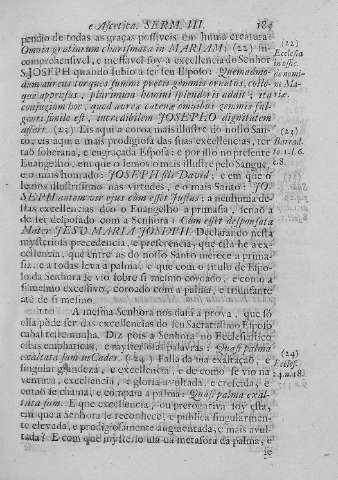 e Ascetica. SERM. III. 184
pendio de todas as graças possiveis em huma creatura:
Omnia gratiarum charismata in MARIAM: (22) in-
comprehensivel, e ineffavel foy a excellencia do Senhor
S. JOSEPH quando subio a ser seu Esposo: Quemadmo-
dum aureus torques summi pretii gemmis ornatus, collo-
que appensus, plurimum homini splendoris addit; ita
conjugium hoc, quod aurea catena omnibus gemmis ful-
guris simile est, incredibilem JOSEPHO dignitatem
affert. (23) Eis aqui a coroa mais illustre do nosso San-
to; eis aqui a mais prodigiosa das suas excellencias, ter
taõ soberana, e engraçada Esposa: e por isso no presente
Euangelho, em que o lemos o mais illustre pelo Sangue
e o mais honrado: JOSEPH fili David: e em que o
lemos illustrissimo nas virtudes, e o mais Santo: JO-
SEPH autem vir ejus cum esset Justus: a nenhuma de-
stas excellencias deo o Euangelho a primasia, senaõ a
de ser desposado com a Senhora: Cum esset desponsata
Mater JESU MARIA JOSEPH. Declarando nesta
mysteriosa precedencia, e preferencia, que esta he a ex-
cellencia, que entre as do nosso Santo merece a prima-
sia, e a todas leva a palma; e que com o titulo de Espo-
so da Senhora se vio sobre si mesmo coroado, e como a
si mesmo excessivo, coroado com a palma, e triunfante
até de si mesmo.
A mesma Senhora nos dará a prova, que só
ella póde ser das excellencias do seu Sacratissimo Esposo
cabal testemunha. Diz pois a Senhora no Ecclesiastico
estas emphaticas, e mysteriosas palavras: Quasi palma
exaltata sum in Cades. (24) Falla da sua exaltação, e
singular grandeza, e excellencia, e de como se vio na
ventura, excellencia, e gloria avultada, e crescida, e
entaõ se chama, e compara a palma: Quasi palma exal-
tata sum. E que excellencia, ou prerogativa foy esta,
em que a Senhora se reconhece, e publica singularmen-
te elevada, e prodigiosamente augmentada, e mais avul-
tada? E com que mysterio usa da metafora da palma, e
se
(22)
Ecclesia
in offic.
(23)
(24)